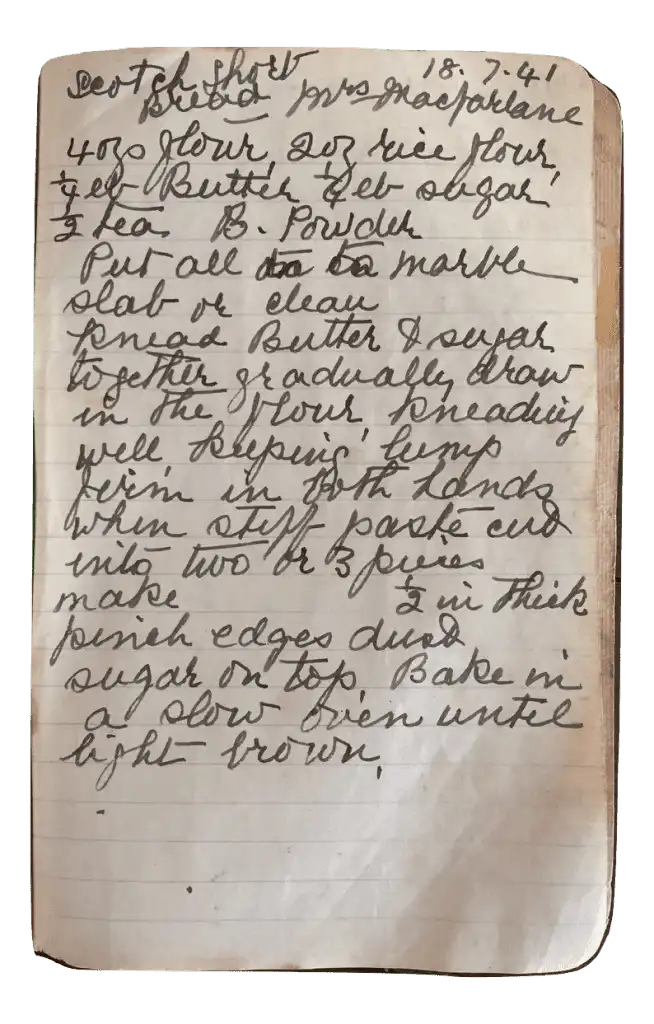 Scotch Short 18.7.41
Bread Mrs Macfarlane
4ozs flour, 2oz rice flour,
1/4 lb Butter 1/4 lb sugar
1/2 tea B. Powder
Put all to marble
slab or clean
knead Butter & sugar
together gradually draw
in the flour, kneading
well, keeping lump
firm in both hands
when stiff paste cut
into two or 3 pieces
make 1/2 in thick
pinch edges dust
sugar on top. Bake in
a slow oven until
light brown.